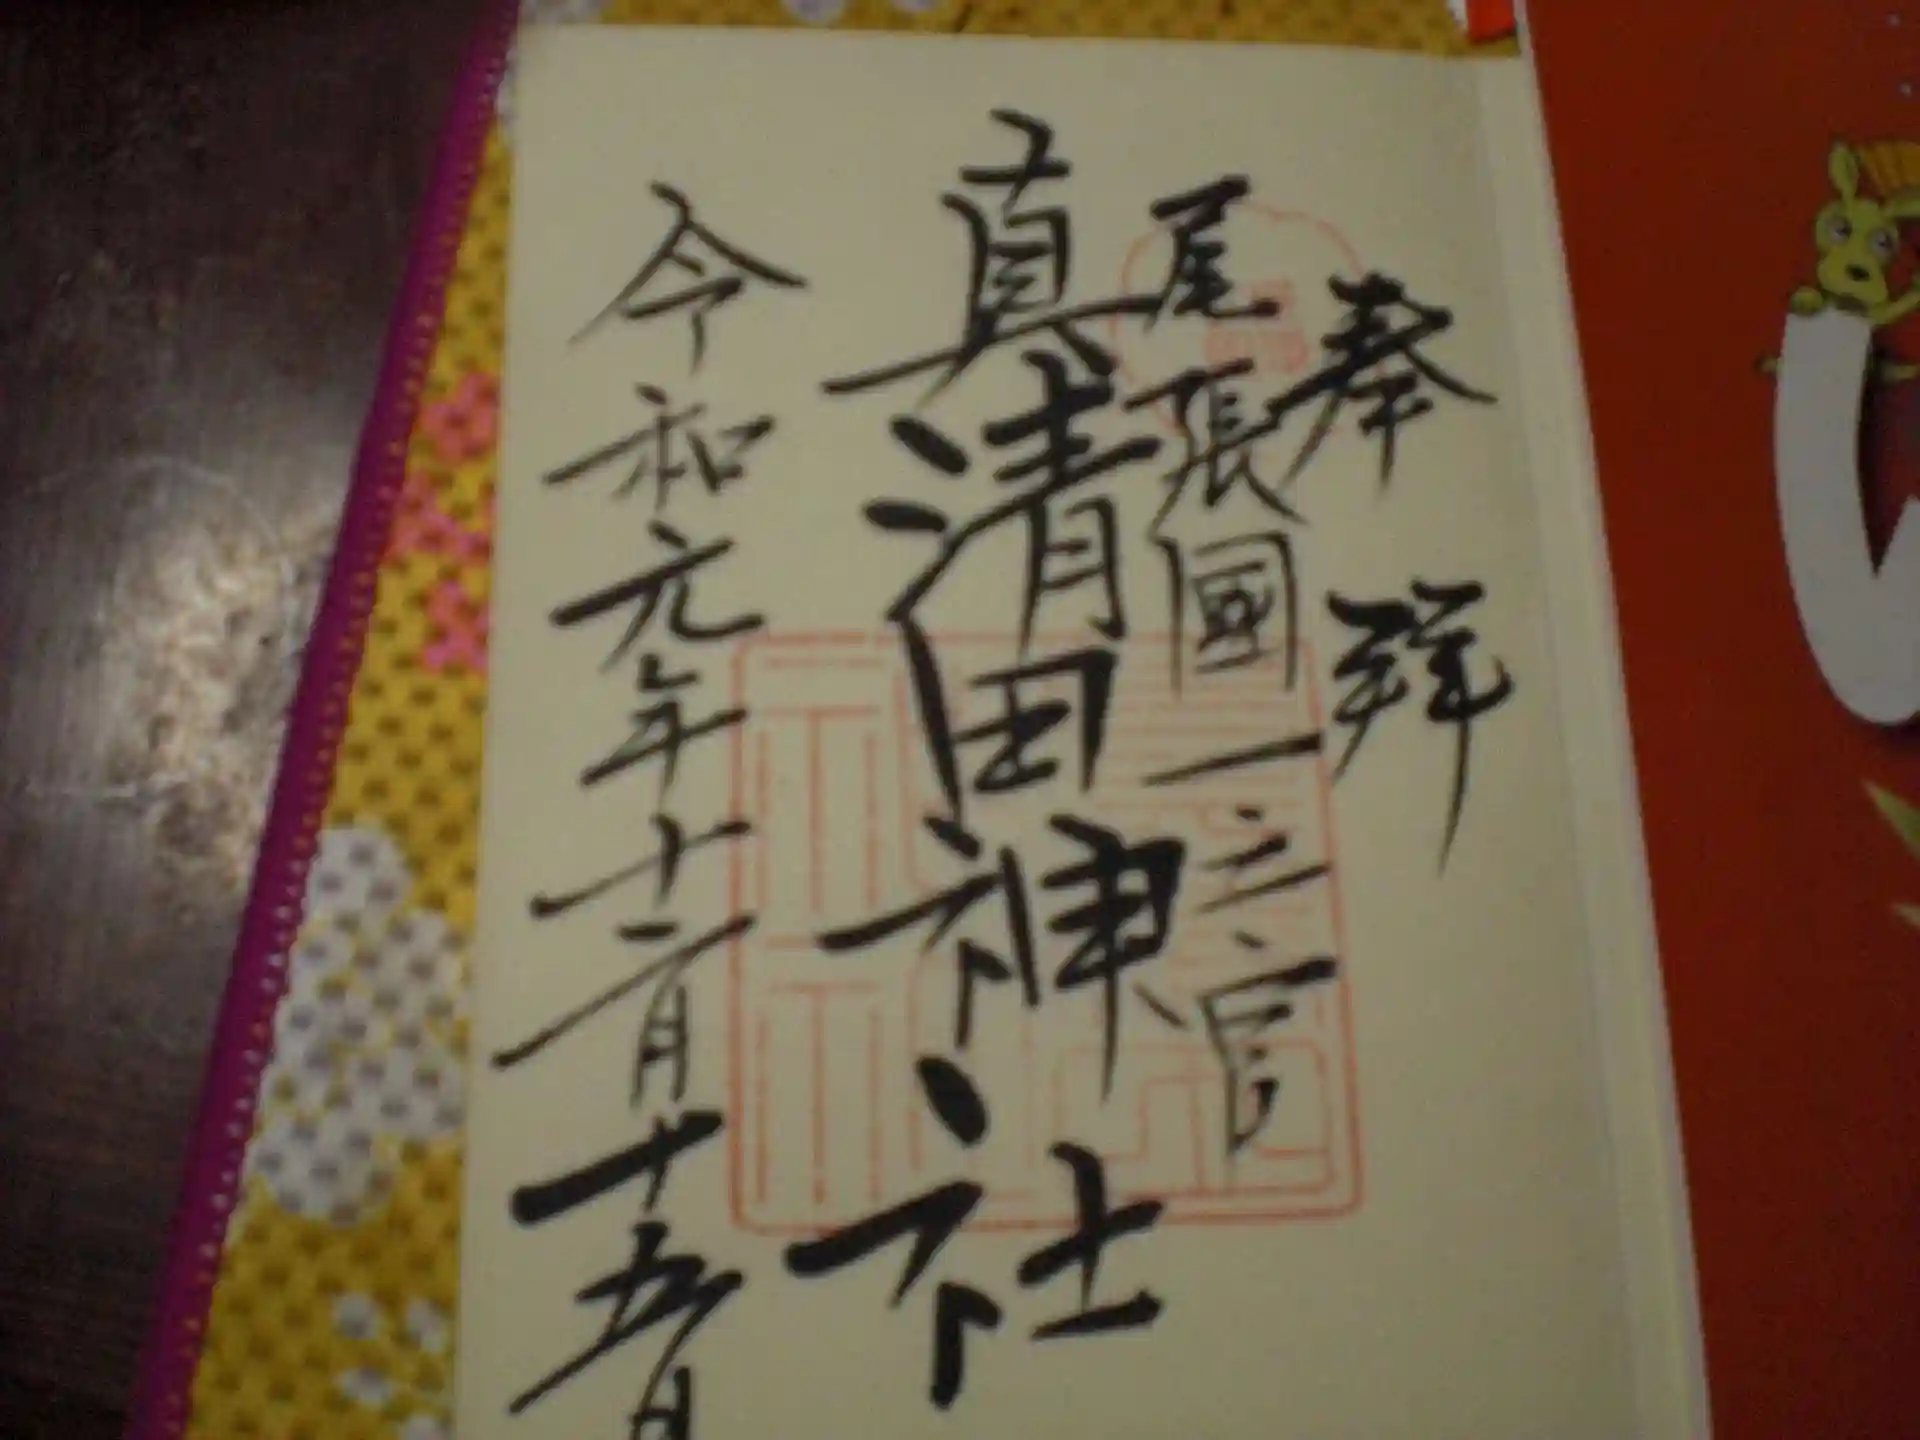 奉拝
尾張國一之宮
真清田神社
令和元年十二月十五日